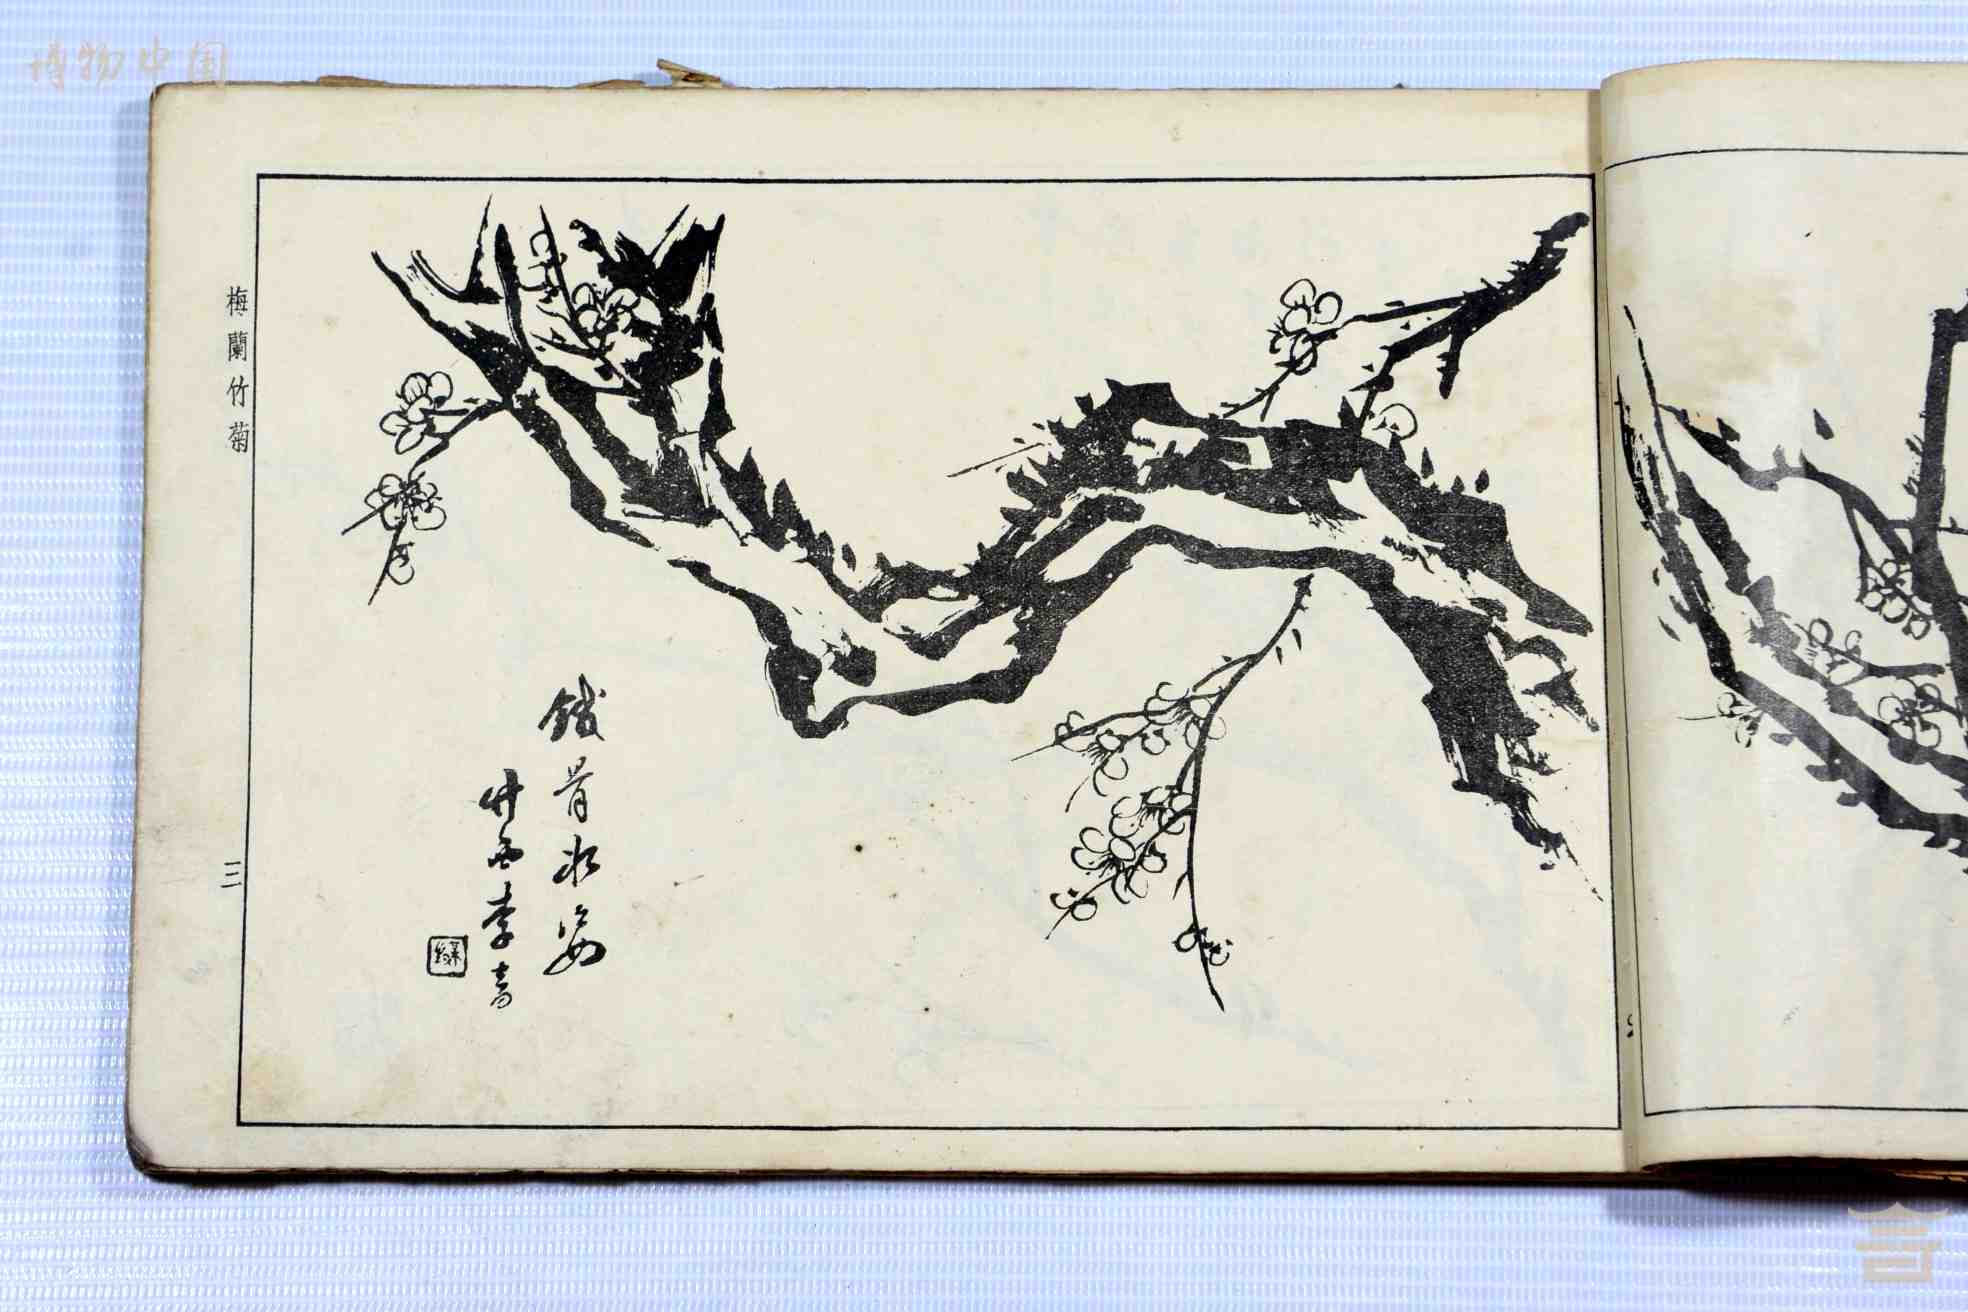 博物中国
鐵骨冰姿
竹西李
梅蘭竹菊
三